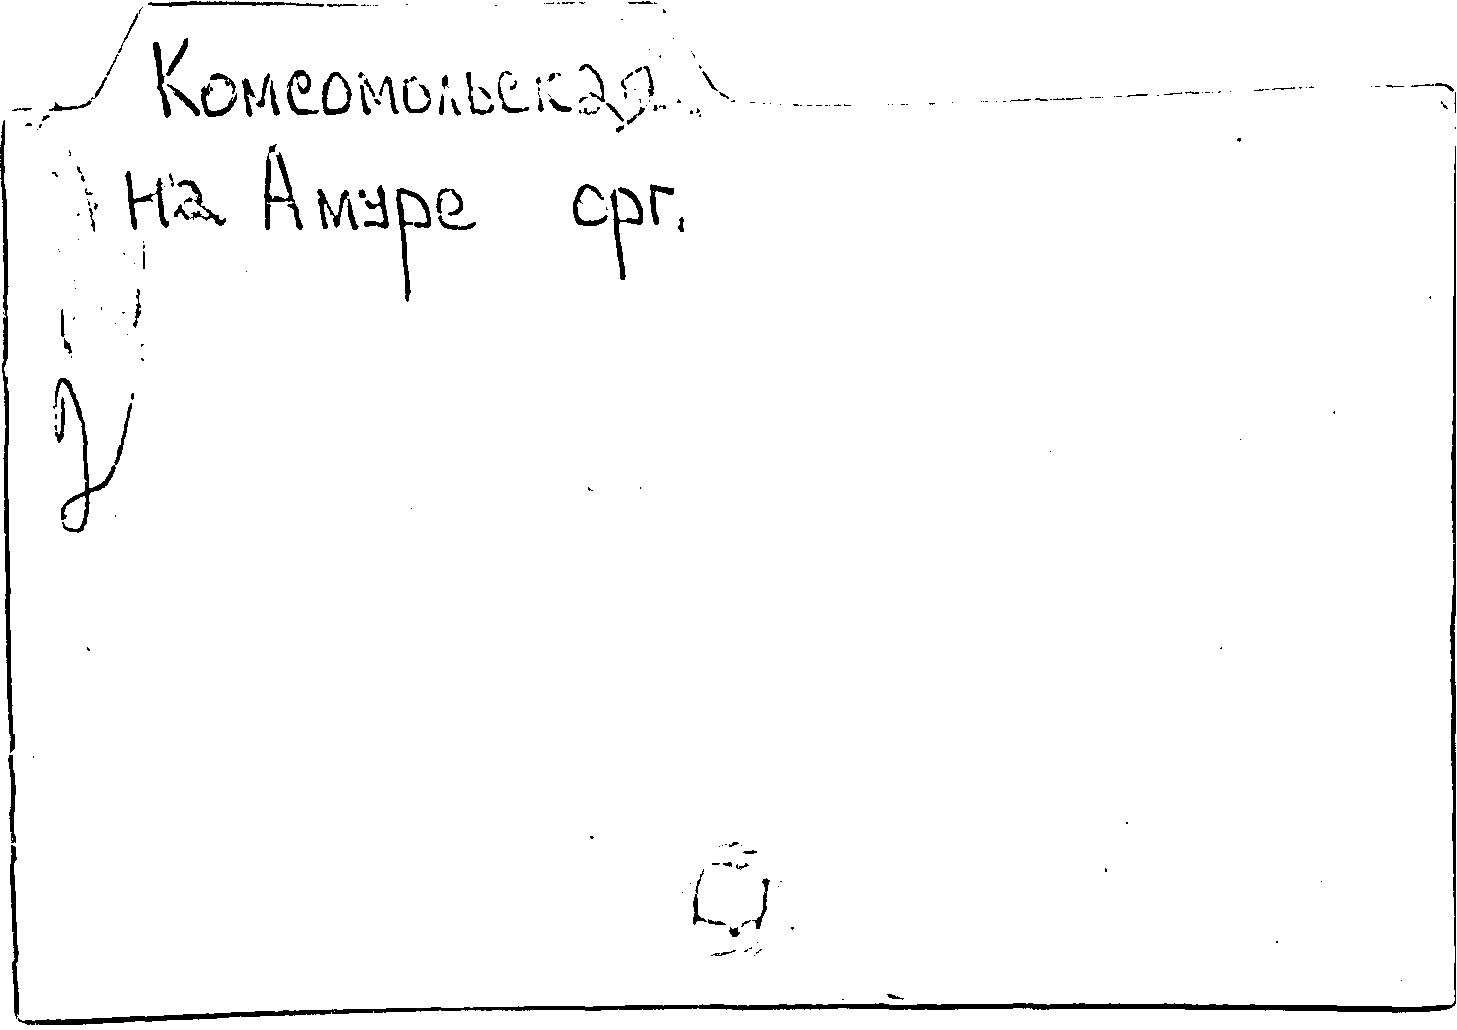 Комсомольская
на Амуре срг.